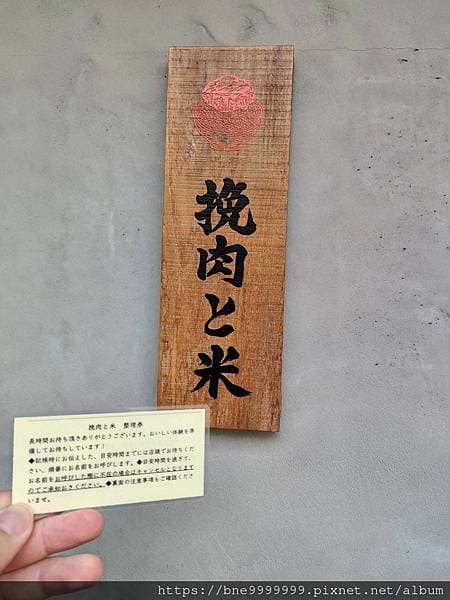 挽肉と米
挽肉と米　整理券
長時間お待ち頂きありがとうございます。おいしい体験を準
備してお待ちしています！
◆記帳時にお伝えした、目安時間までには店頭でお待ちくだ
さい、順番にお名前をお呼びします。◆目安時間を過ぎて、
お名前をお呼びした際に不在の場合はキャンセルとなります
のでご承知おきください。◆裏面の注意事項もご確認くださ
いませ。
https://bne9999999.pixnet.net/album